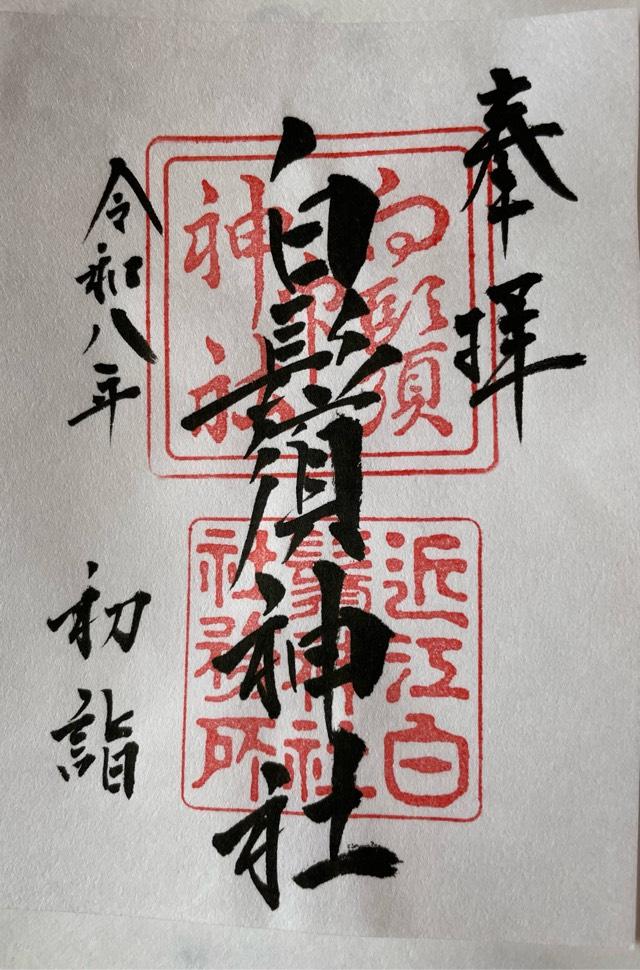 奉拝
白鬚神社
令和八年
初詣
近江白
鬚神社
社務所